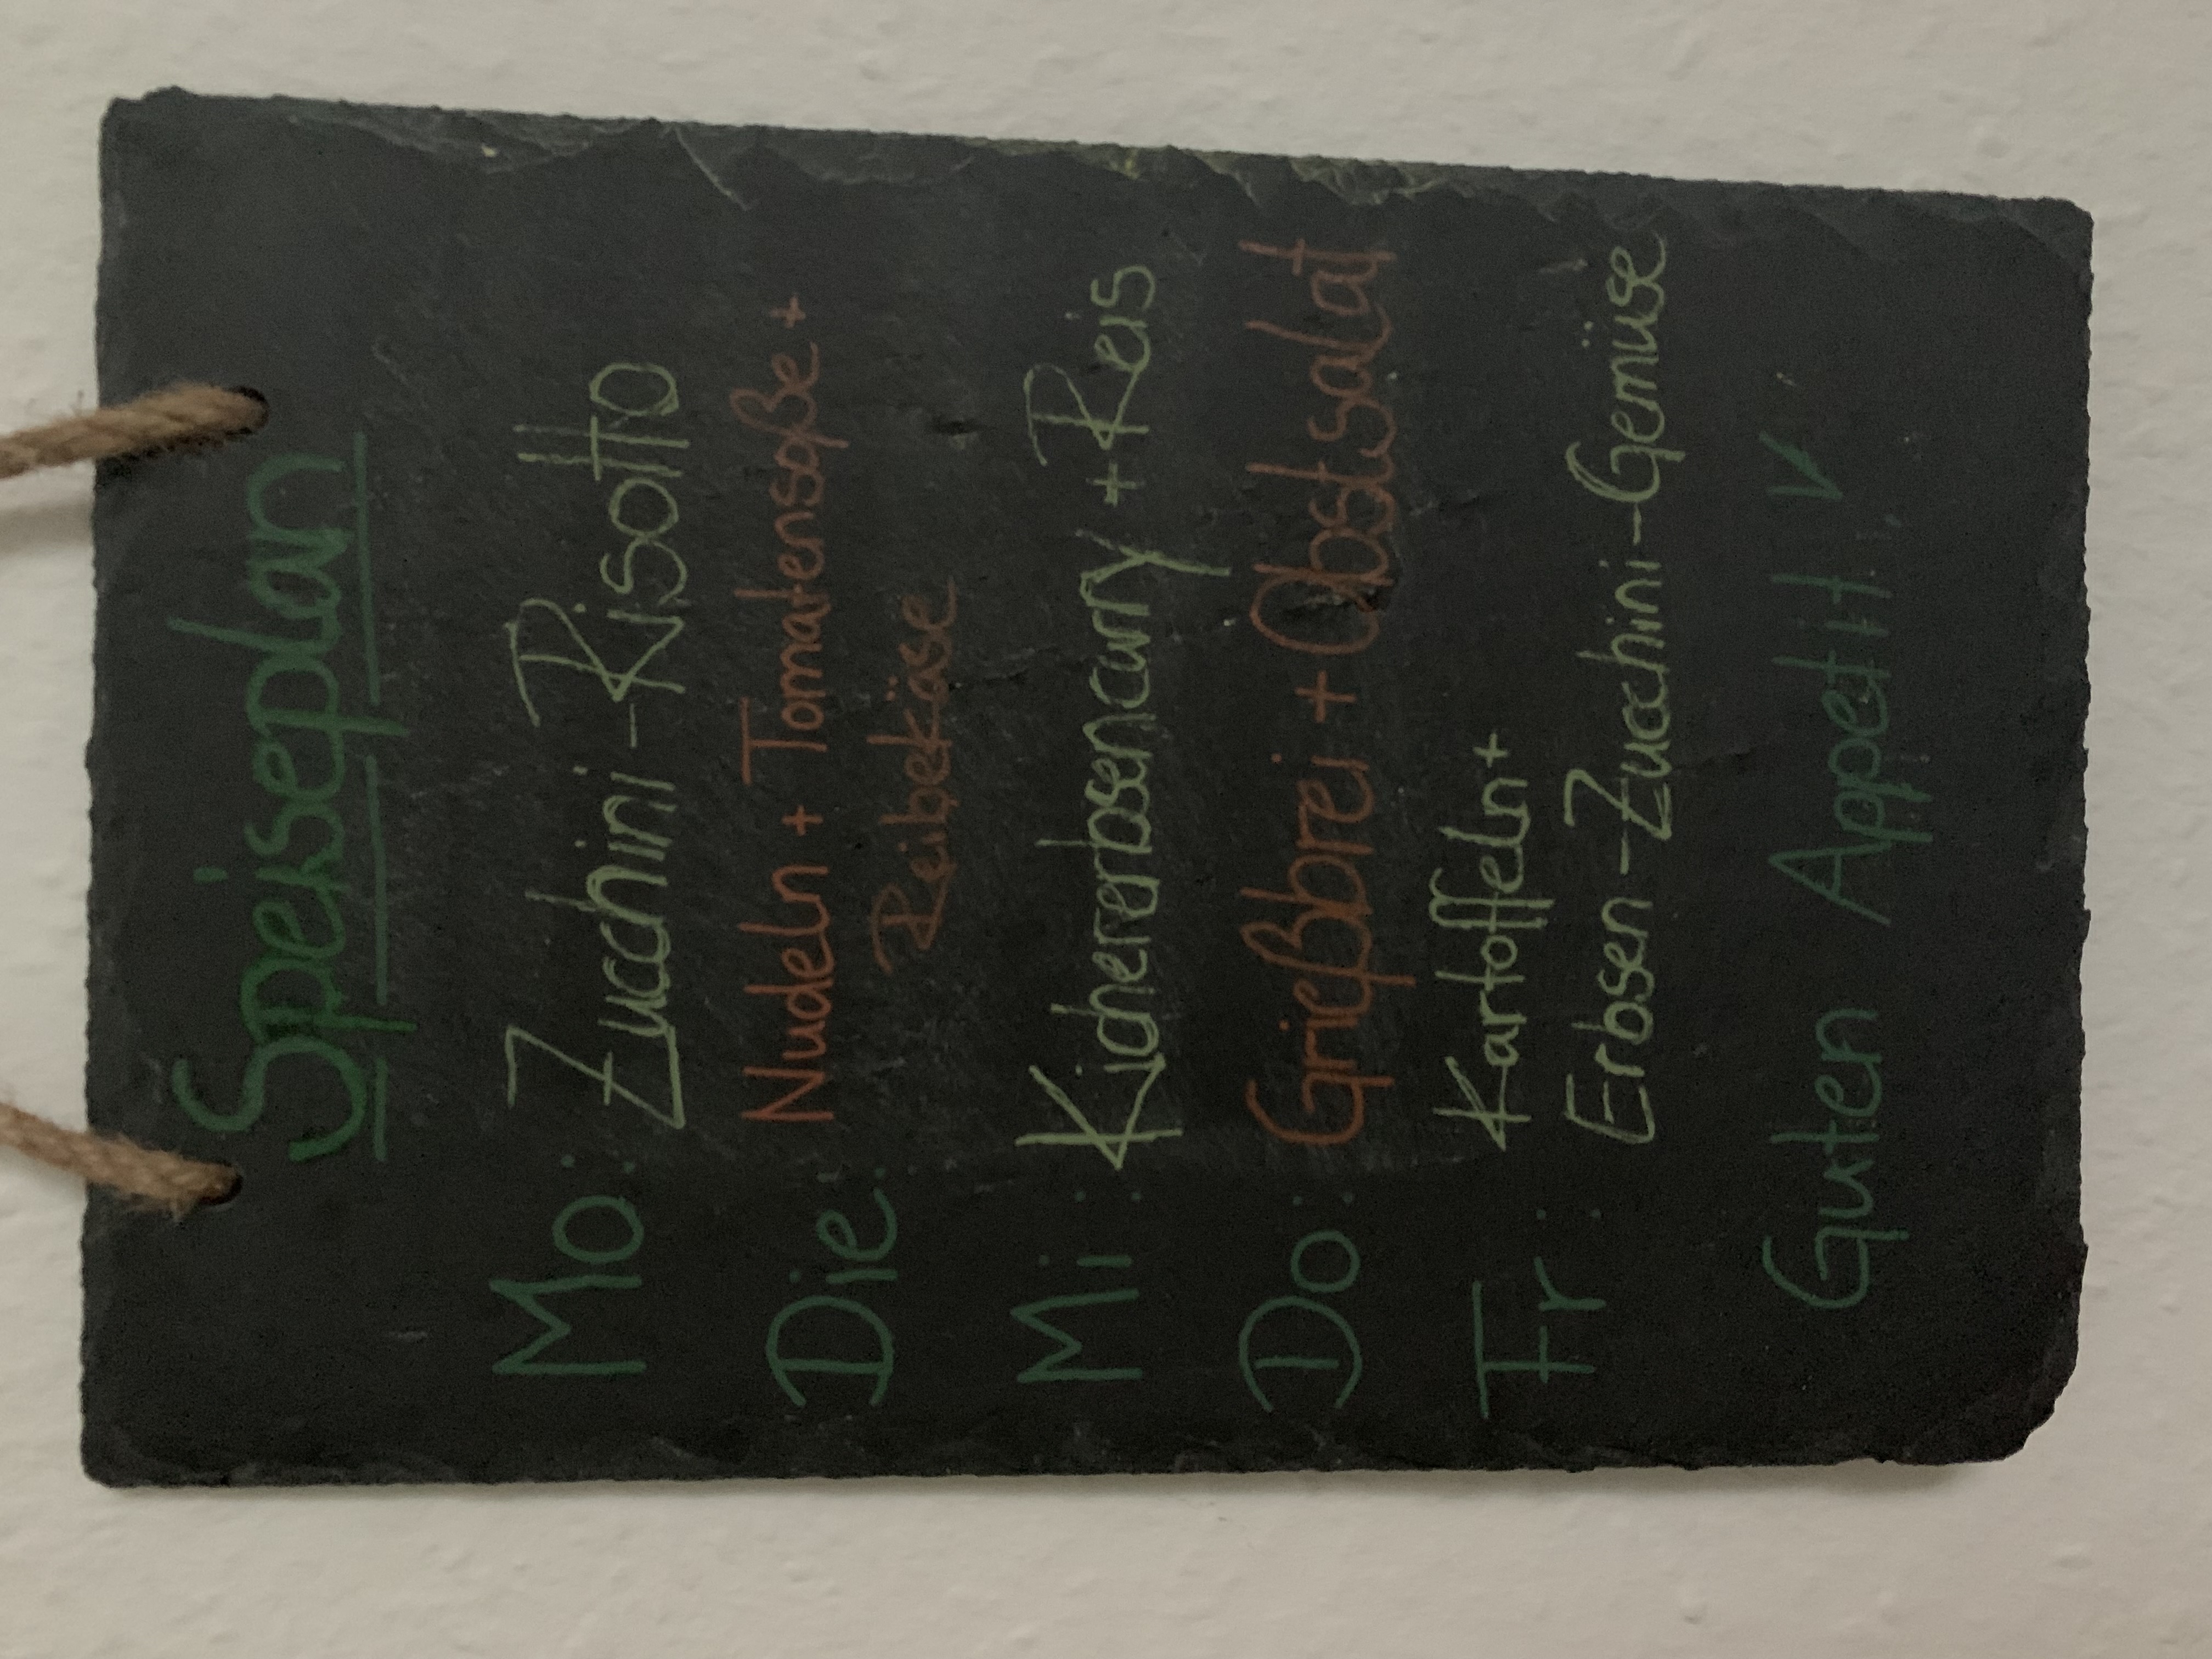 Speiseplan
Mo: Zucchini-Risotto
Die: Nudeln + Tomatensoße +
Reibekäse
Mi: Kichererbsencurry + Reis
Do: Grießbrei + Obstsalat
Kartoffeln +
Fr: Erbsen-Zucchini-Gemüse
Guten Appetit!